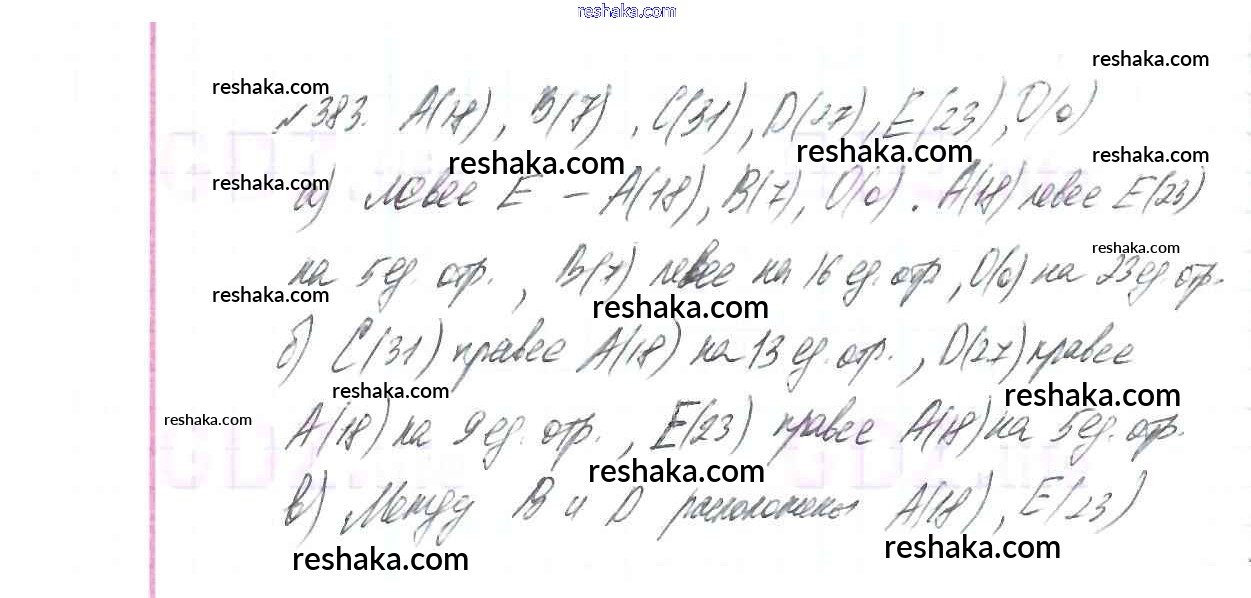 reshaka.com
reshaka.com
reshaka.com
№ 383. A(18), B(7), C(31), D(27), E(23), O(0)
reshaka.com reshaka.com reshaka.com
reshaka.com
а) левее E – A(18), B(7), O(0). A(18) левее E(23)
reshaka.com
на 5 ед. отр., B(7) левее на 16 ед. отр, O(0) на 23 ед. отр.
reshaka.com reshaka.com
б) C(31) правее A(18) на 13 ед. отр., D(27) правее
reshaka.com reshaka.com
reshaka.com
A(18) на 9 ед. отр., E(23) правее A(18) на 5 ед. отр.
reshaka.com
в) Между B и D расположены A(18), E(23)
reshaka.com reshaka.com